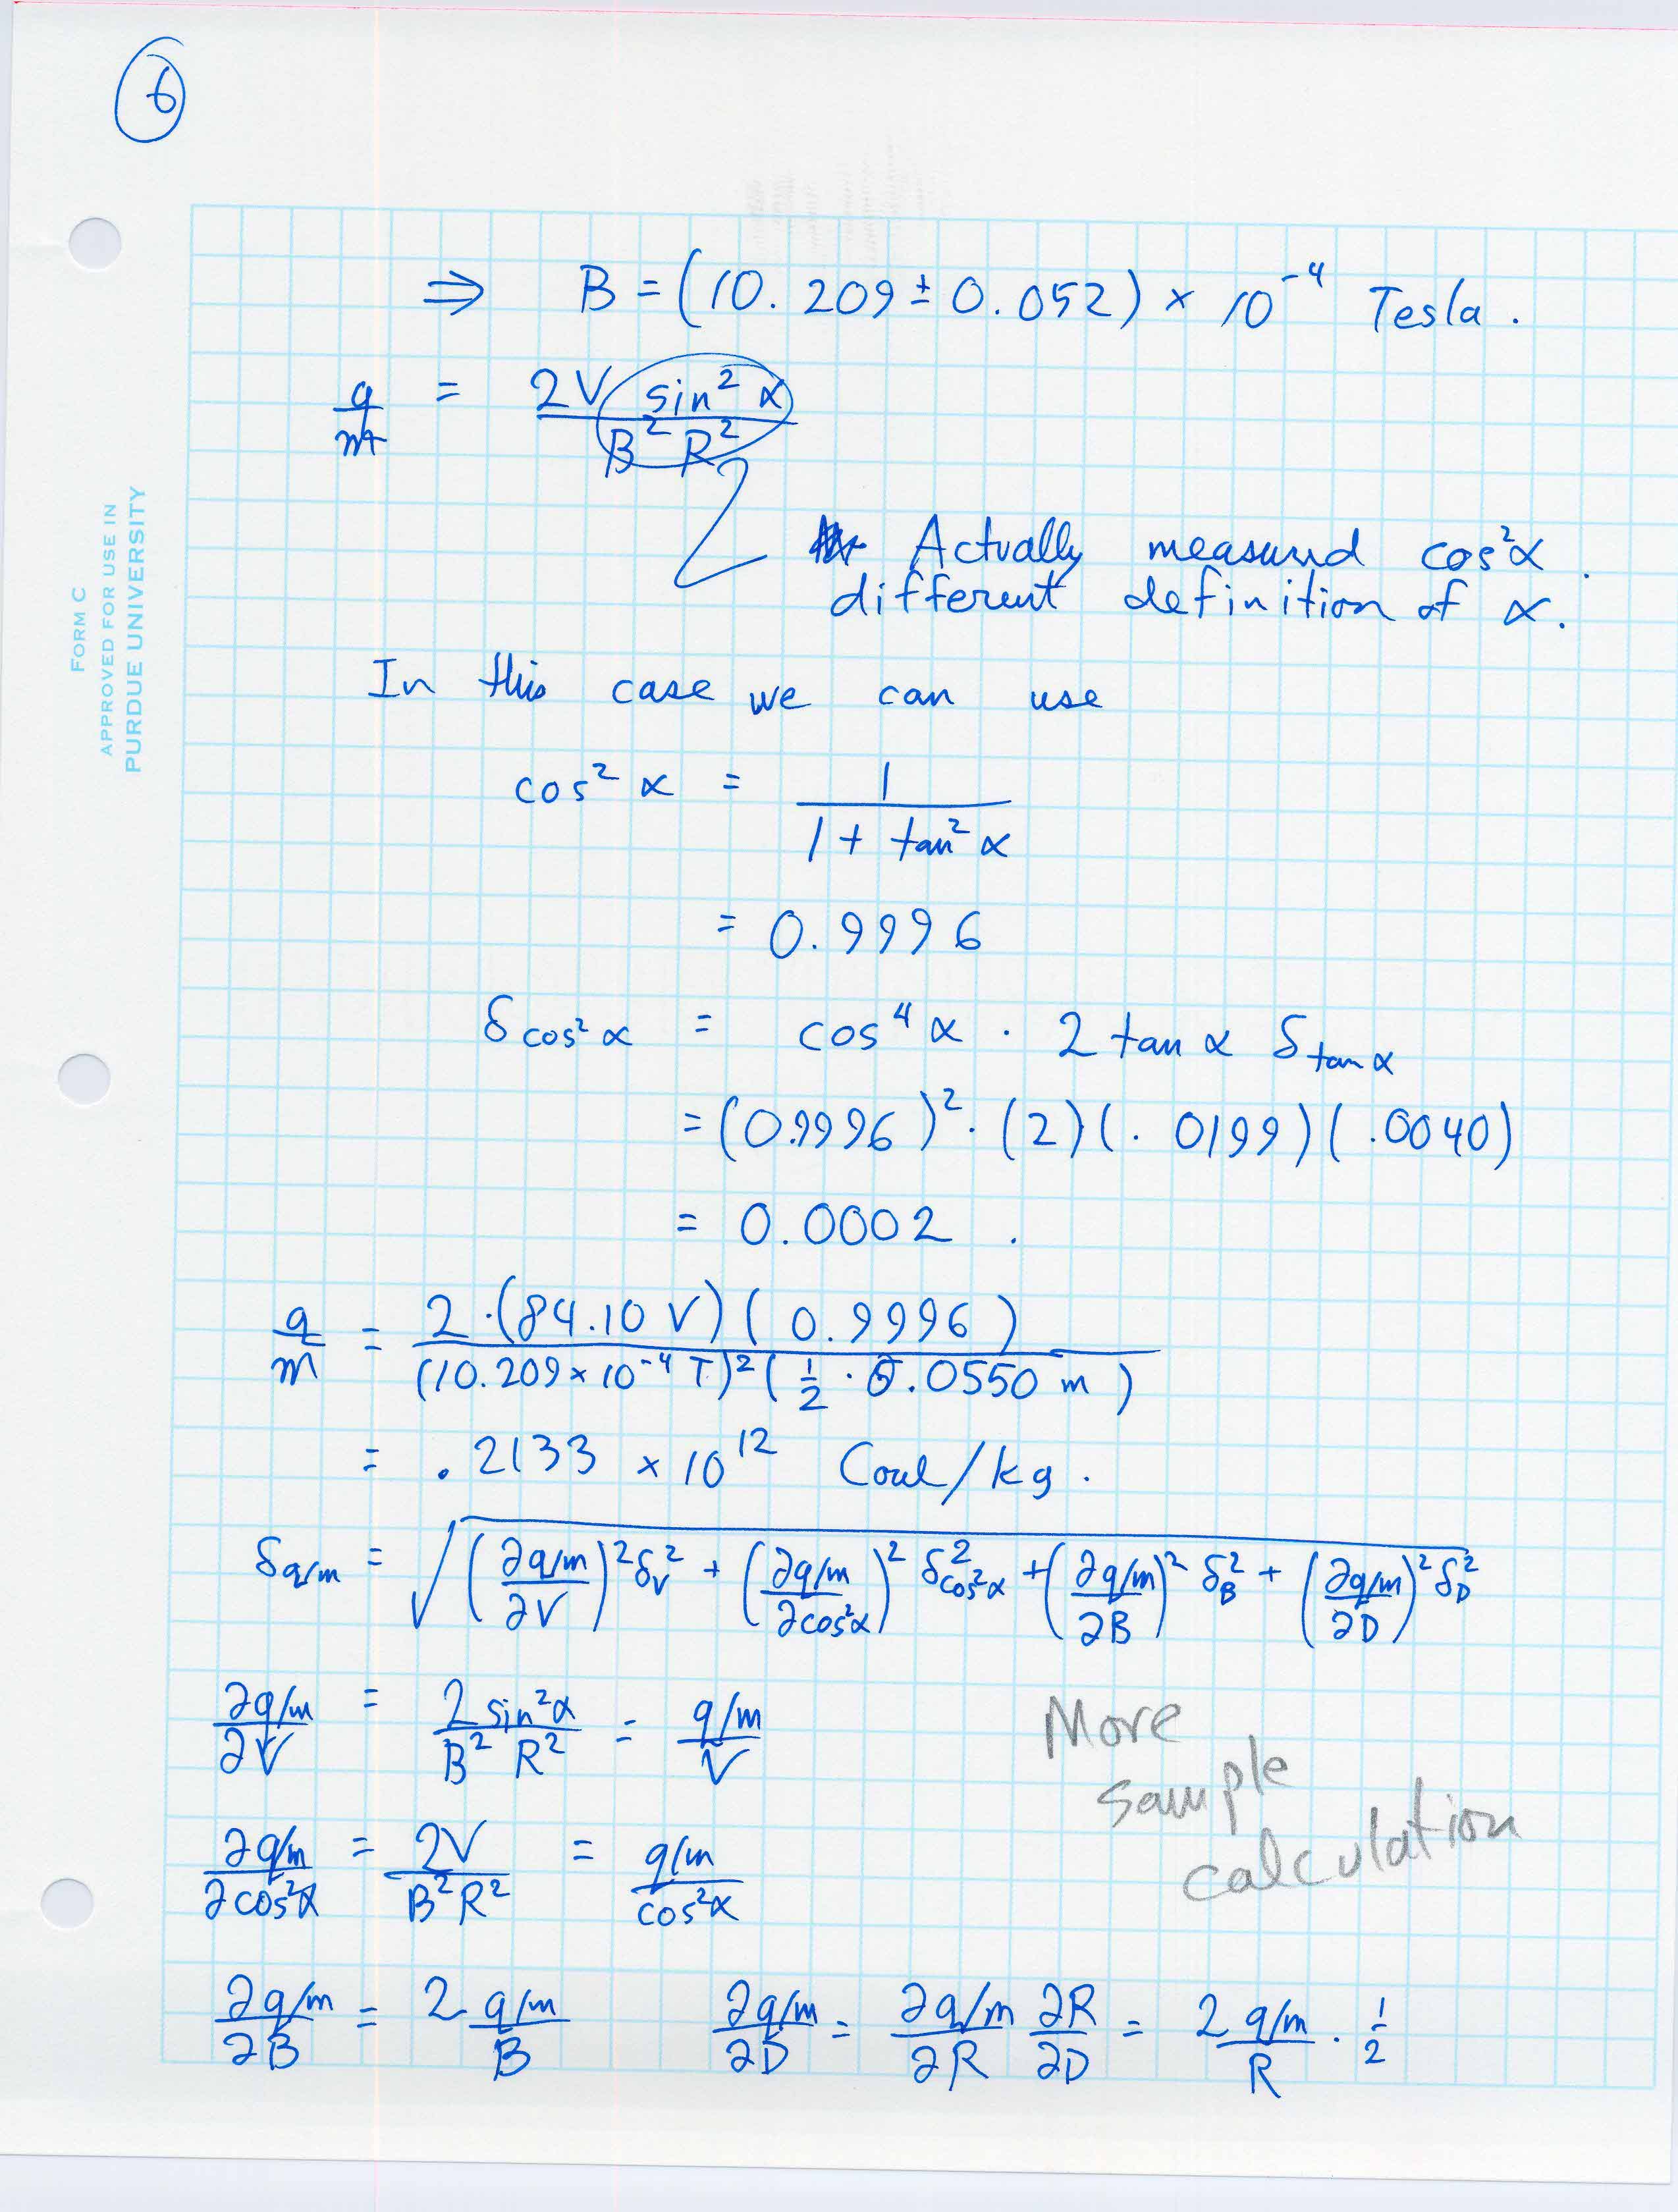 6
FORM C
APPROVED FOR USE IN
PURDUE UNIVERSITY
⇒ B = (10.209 ± 0.052) × 10⁻⁴ Tesla.
q/m = 2V sin²α / B² R²
Actually measured cos²α.
different definition of α.
In this case we can use
cos²α = 1 / (1 + tan²α)
= 0.9996
δ_cos²α = cos⁴α · 2 tanα δ_tanα
= (0.9996)² · (2)(.0199)(.0040)
= 0.0002 .
q/m = 2·(84.10 V)(0.9996) / (10.209 × 10⁻⁴ T)² (½ · 0.0550 m)
= .2133 × 10¹² Coul/kg.
δ_q/m = √( (∂q/m / ∂V)² δ_V² + (∂q/m / ∂cos²α)² δ²_cos²α + (∂q/m / ∂B)² δ_B² + (∂q/m / ∂D)² δ_D² )
∂q/m / ∂V = 2 sin²α / B² R² = q/m / V
More
sample
calculation
∂q/m / ∂cos²α = 2V / B²R² = q/m / cos²α
∂q/m / ∂B = 2 q/m / B ∂q/m / ∂D = ∂q/m / ∂R ∂R / ∂D = 2 q/m / R · ½